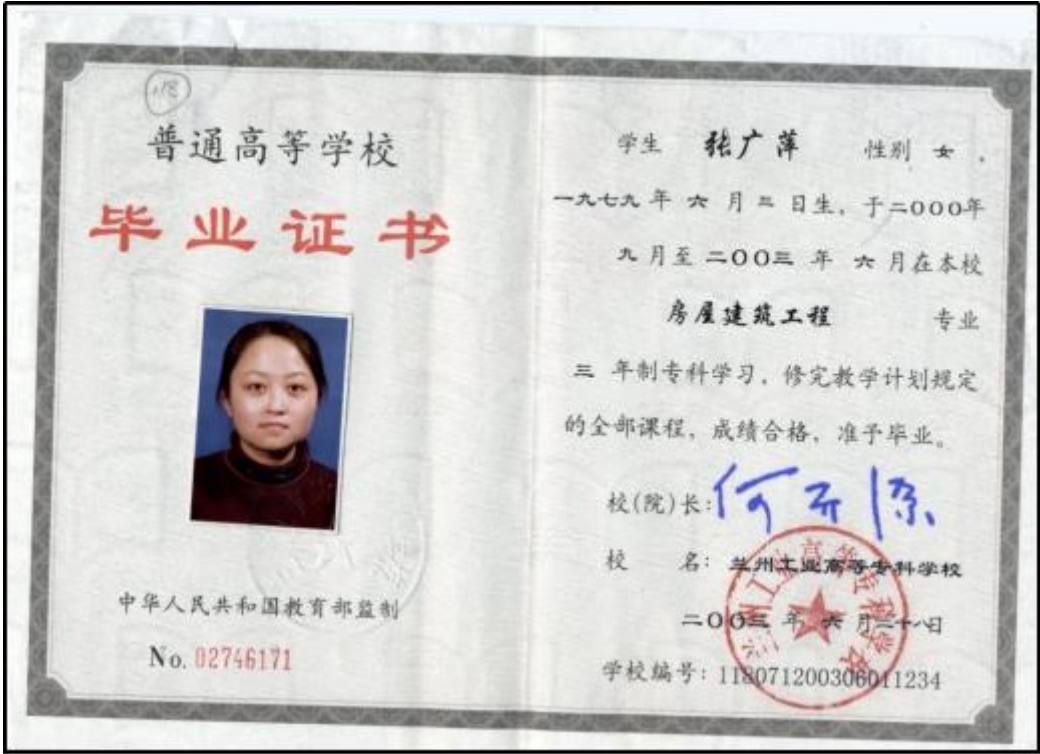 普通高等学校
毕业证书
中华人民共和国教育部监制
No. 02746171
学生 张广萍 性别 女,
一九七九年六月三日生,于二000年
九月至二00三年六月在本校
房屋建筑工程 专业
三年制专科学习,修完教学计划规定
的全部课程,成绩合格,准予毕业。
校(院)长:
校 名:兰州工业高等专科学校
二00三年六月二十八日
学校编号:118071200306011234
兰州工业高等专科学校